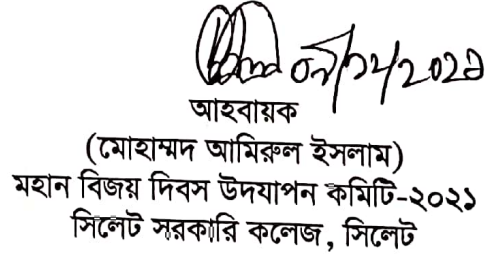 ০৯/১২/২০২১
আহবায়ক
(মোহাম্মদ আমিরুল ইসলাম)
মহান বিজয় দিবস উদযাপন কমিটি-২০২১
সিলেট সরকারি কলেজ, সিলেট